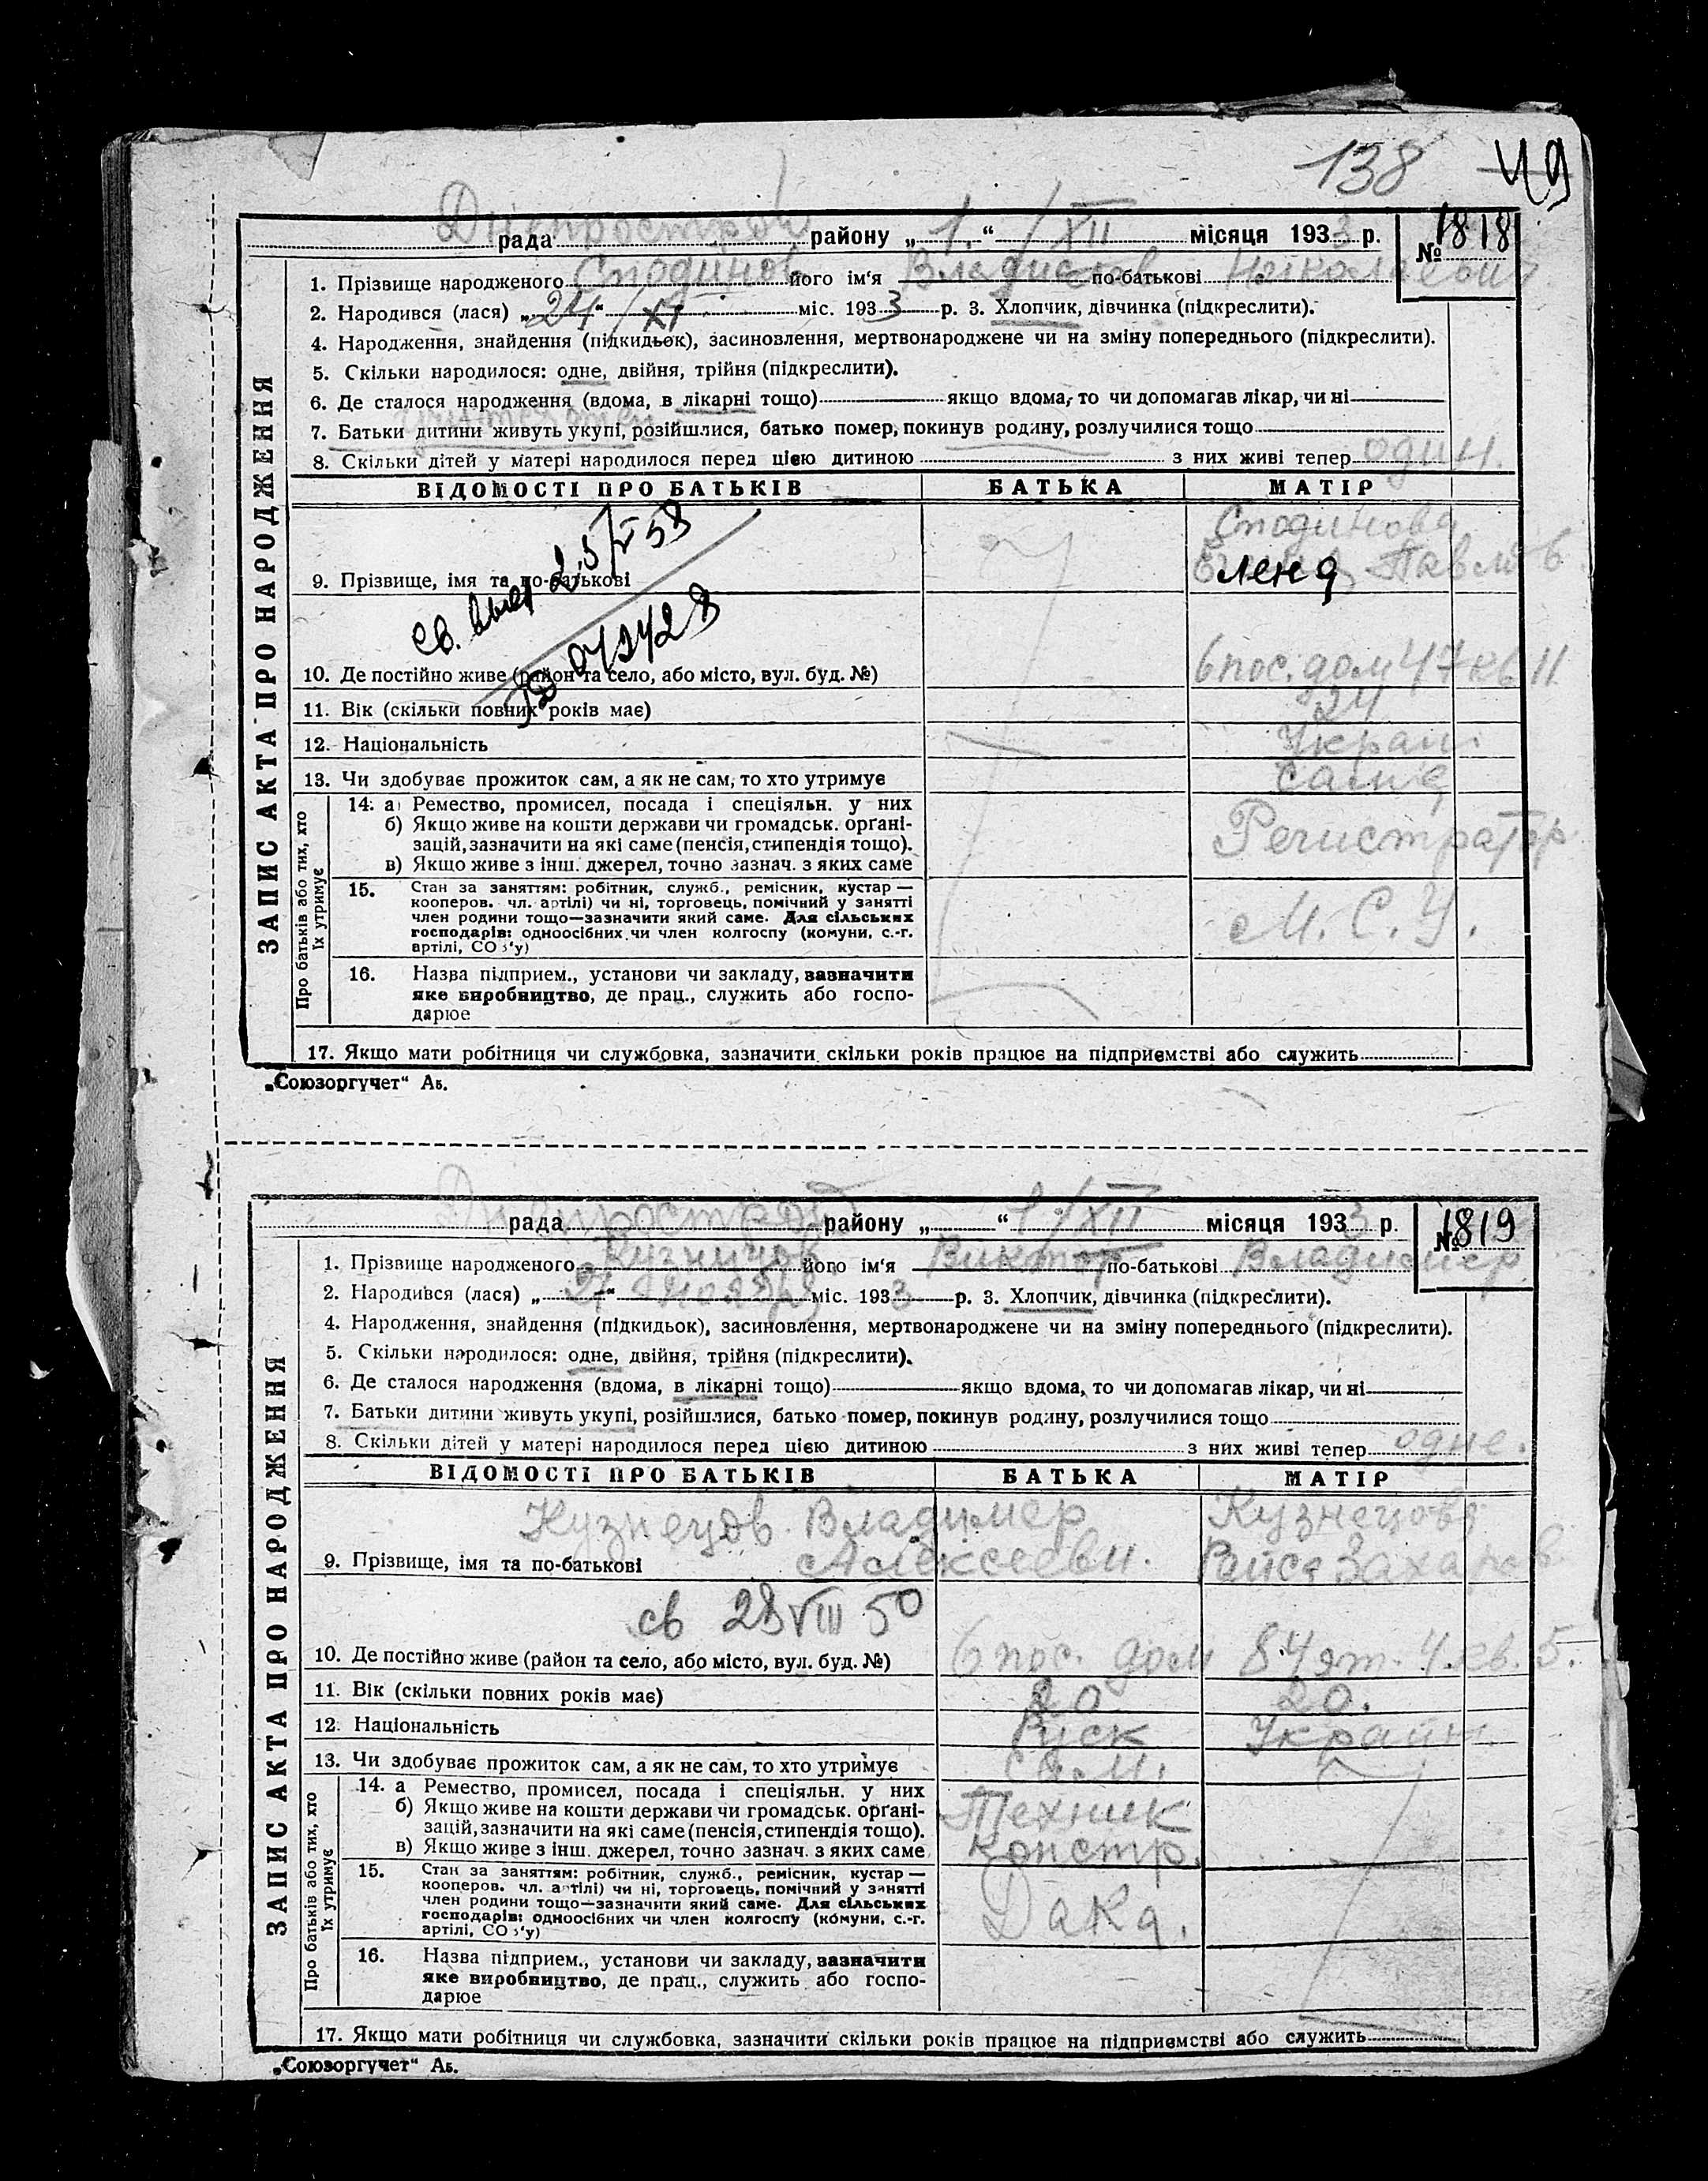 138 49
Дніпрострой
рада району „ 1 “ / XII місяця 1933 р. № 1818
1. Прізвище народженого Сподинов його ім‘я Владислав по-батькові Николаевич
2. Народився (лася) „ 24 “ / XI міс. 1933 р. 3. Хлопчик, дівчинка (підкреслити).
4. Народження, знайдення (підкидьок), засиновлення, мертвонароджене чи на зміну попереднього (підкреслити).
5. Скільки народилося: одне, двійня, трійня (підкреслити).
6. Де сталося народження (вдома, в лікарні тощо) якщо вдома, то чи допомагав лікар, чи ні
7. Батьки дитини живуть укупі, розійшлися, батько помер, покинув родину, розлучилися тощо
8. Скільки дітей у матері народилося перед цією дитиною з них живі тепер один.
ЗАПИС АКТА ПРО НАРОДЖЕННЯ
ВІДОМОСТІ ПРО БАТЬКІВ БАТЬКА МАТІР
Сподинова
9. Прізвище, імя та по-батькові Павлов
лена
св. 2.5/V 58
072428
10. Де постійно живе (район та село, або місто, вул. буд. №) 6 пос. дом 47 кв 11
11. Вік (скільки повних років має) 24
12. Національність Украін.
13. Чи здобуває прожиток сам, а як не сам, то хто утримує сама
Про батьків або тих, хто
їх утримує
14. а) Ремество, промисел, посада і спеціяльн. у них
б) Якщо живе на кошти держави чи громадськ. орґані-
зацій, зазначити на які саме (пенсія, стипендія тощо). Регистратор
в) Якщо живе з інш. джерел, точно зазнач. з яких саме
15. Стан за заняттям: робітник, служб., ремісник, кустар —
кооперов. чл. артілі) чи ні, торговець, помічний у занятті
член родини тощо—зазначити який саме. Для сільських
господарів: одноосібних чи член колгоспу (комуни, с.-г. М. С. У.
артілі, СОз‘у)
16. Назва підприєм., установи чи закладу, зазначити
яке виробництво, де прац., служить або госпо-
дарює
17. Якщо мати робітниця чи службовка, зазначити скільки років працює на підприємстві або служить
„Союзоргучет“ Аб.
Днепрострой
рада району „ “ 1 / XII місяця 1933 р. № 1819
1. Прізвище народженого його ім‘я Виктор по-батькові Владимер
2. Народився (лася) „ “ ноября міс. 1933 р. 3. Хлопчик, дівчинка (підкреслити).
4. Народження, знайдення (підкидьок), засиновлення, мертвонароджене чи на зміну попереднього (підкреслити).
5. Скільки народилося: одне, двійня, трійня (підкреслити).
6. Де сталося народження (вдома, в лікарні тощо) якщо вдома, то чи допомагав лікар, чи ні
7. Батьки дитини живуть укупі, розійшлися, батько помер, покинув родину, розлучилися тощо
8. Скільки дітей у матері народилося перед цією дитиною з них живі тепер одне.
ЗАПИС АКТА ПРО НАРОДЖЕННЯ
ВІДОМОСТІ ПРО БАТЬКІВ БАТЬКА МАТІР
Кузнецов Владимер Кузнецова
9. Прізвище, імя та по-батькові Алексееви. Раиса Захаров
св 28 VIII 50
10. Де постійно живе (район та село, або місто, вул. буд. №) 6 пос. дом 84 эт. 4. кв. 5.
11. Вік (скільки повних років має) 20 20.
12. Національність Руск Украин
13. Чи здобуває прожиток сам, а як не сам, то хто утримує сам.
Про батьків або тих, хто
їх утримує
14. а Ремество, промисел, посада і спеціяльн. у них
б) Якщо живе на кошти держави чи громадськ. орґані- Техник
зацій, зазначити на які саме (пенсія, стипендія тощо).
в) Якщо живе з інш. джерел, точно зазнач. з яких саме констр.
15. Стан за заняттям: робітник, служб., ремісник, кустар —
кооперов. чл. артілі) чи ні, торговець, помічний у занятті
член родини тощо—зазначити який саме. Для сільських
господарів: одноосібних чи член колгоспу (комуни, с.-г. Дака.
артілі, СОз‘у)
16. Назва підприєм., установи чи закладу, зазначити
яке виробництво, де прац., служить або госпо-
дарює
17. Якщо мати робітниця чи службовка, зазначити скільки років працює на підприємстві або служить
„Союзоргучет“ Аб.